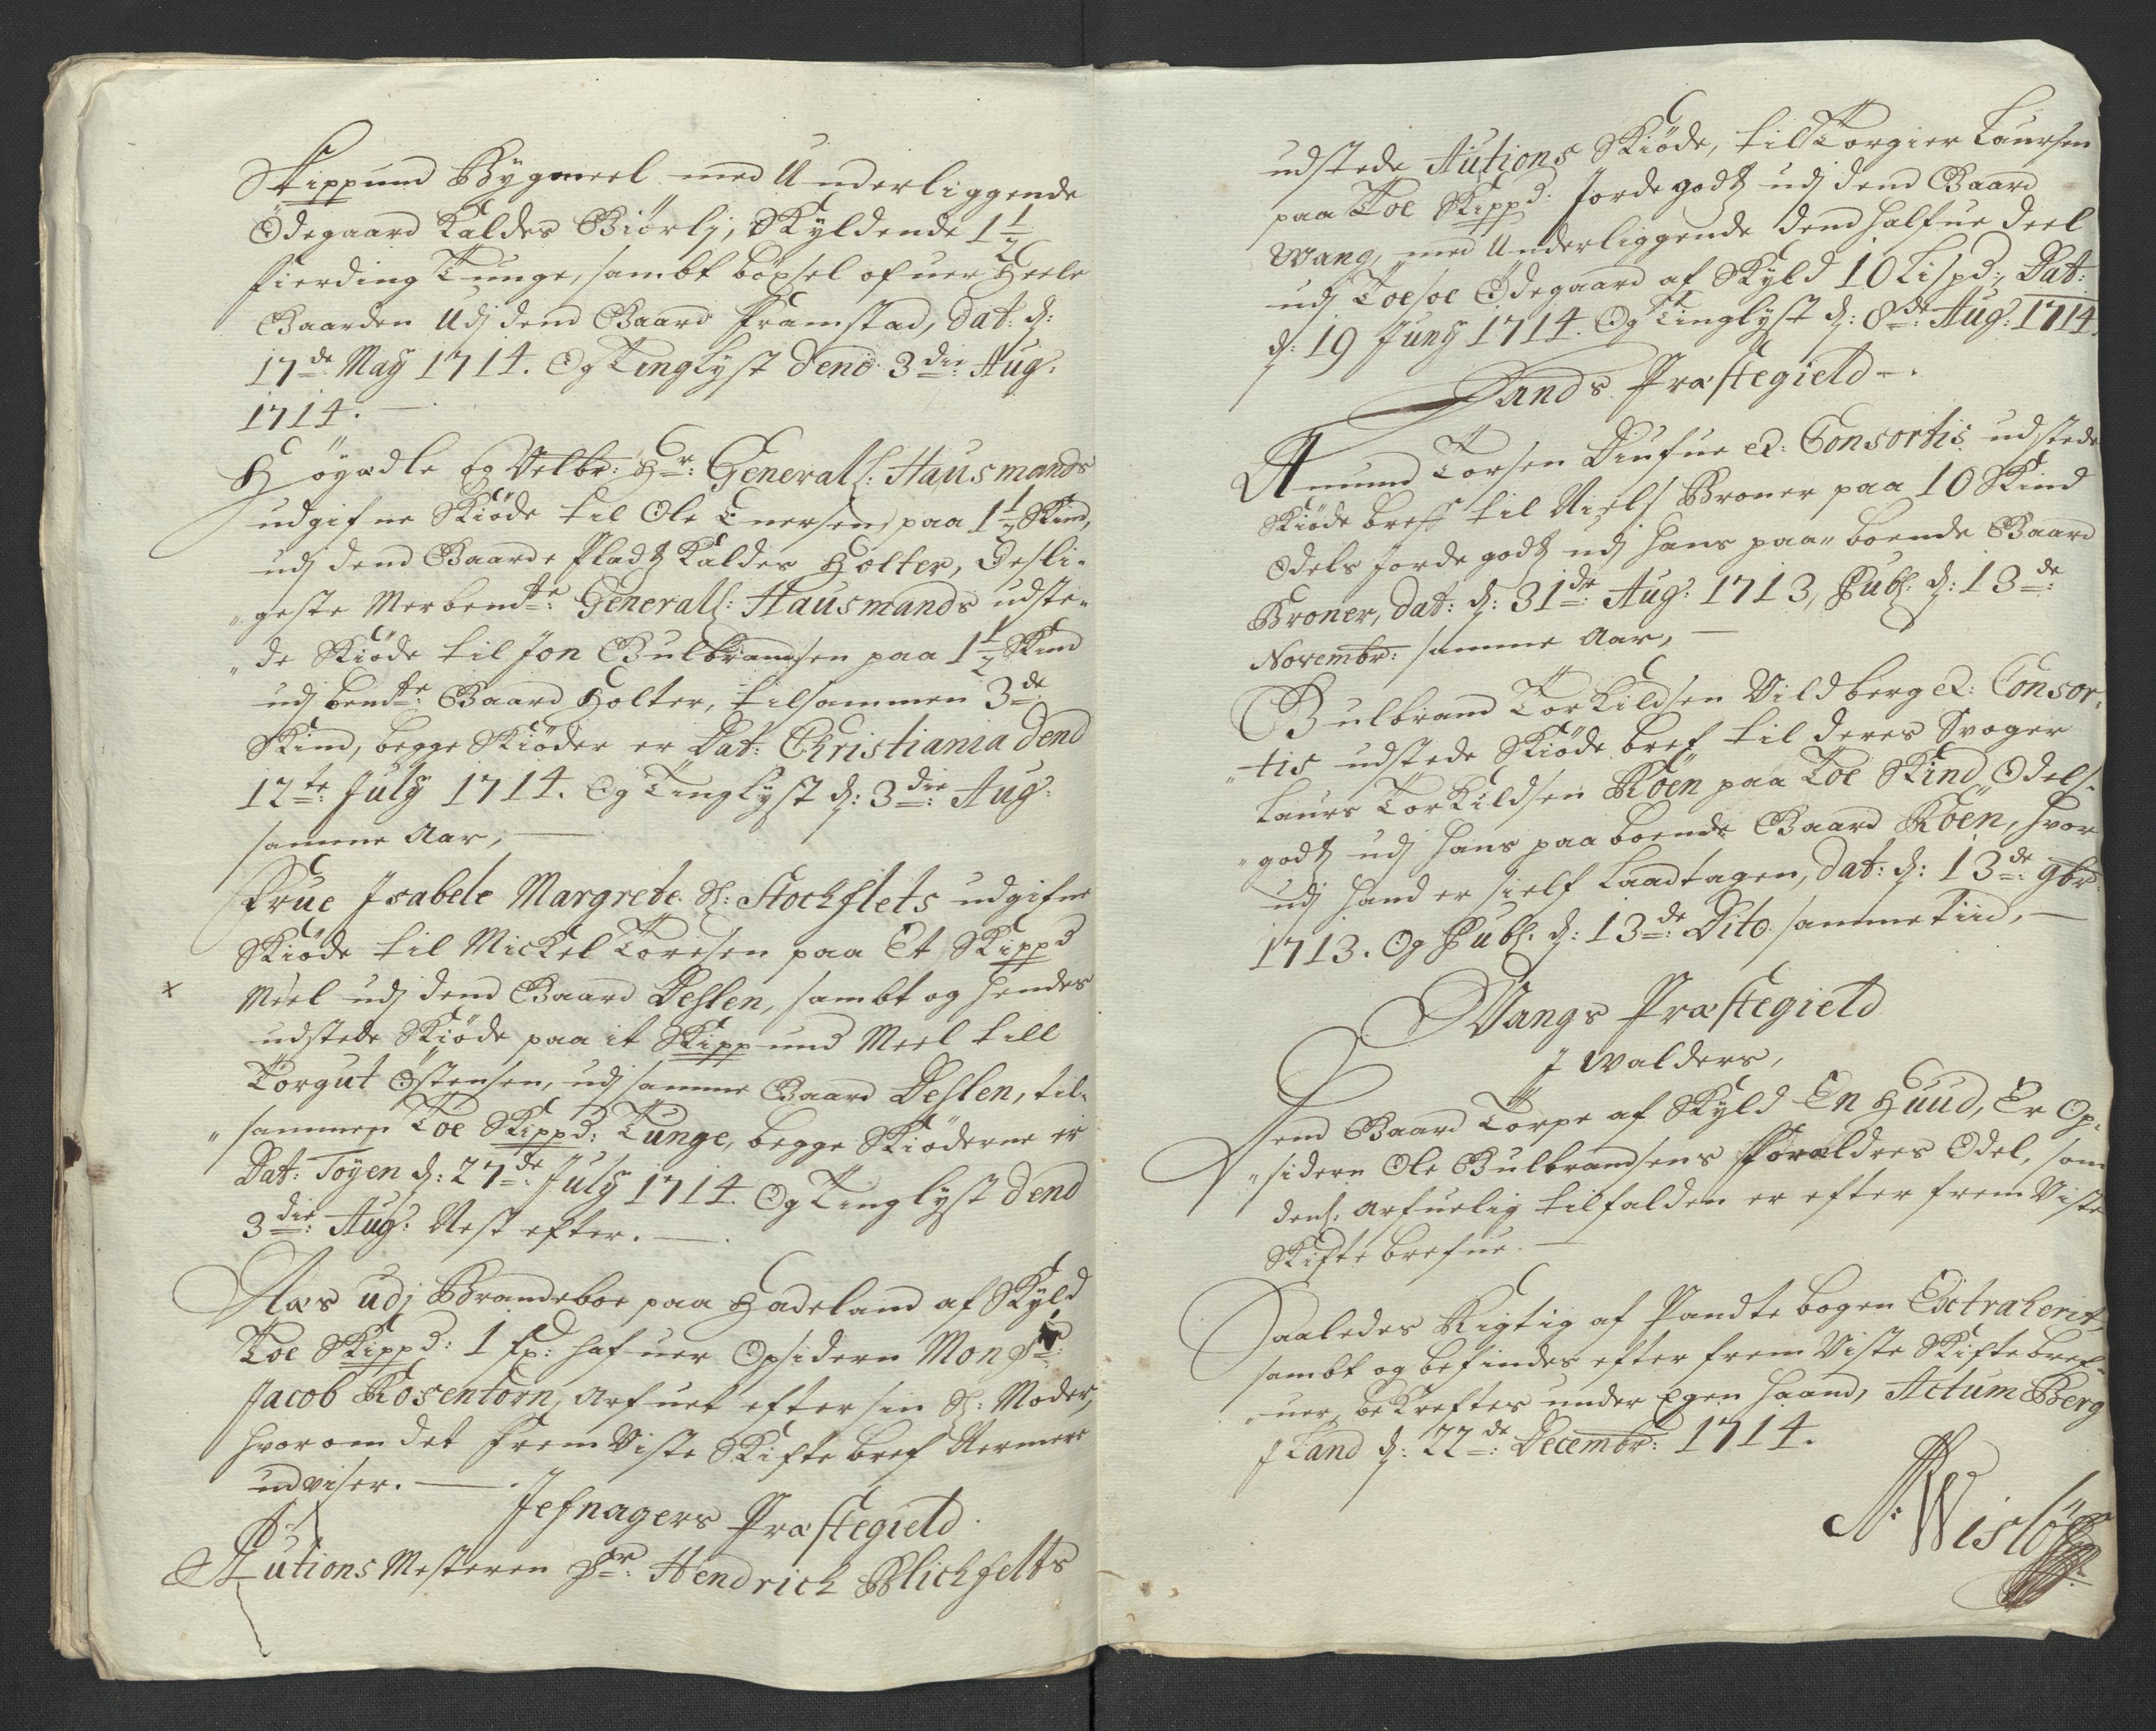 Skippund Bygmeel med Underliggende
Ödegaard Kaldes Biörlj, Skyldende 1½
fierding Tunge, sambt böxsel ofuer Heele
Gaarden Udj dend Gaard Framstad, dat: d:
17de May 1714. Og Tinglyst dend 3die Aug:
1714. —
Höyædle og Velbr: Hr: Generall: Hausmands
udgifne Skiöde til Ole Enersen paa 1½ Skind,
udj dend Gaarde Pladtz Kaldes Holter, Desli-
„geste Merbemte: Generall: Hausmands udste-
„de Skiöde til Jon Gulbrandsen paa 1½ Skind
udj bemte: Gaard Holter, tilsammen 3de
Skind, begge Skiöder er Dat: Christiania dend
12te: July 1714. Og Tinglyst d: 3die: Aug:
samme Aar, —
Frue Isabele Margrete Sl: Stochflets udgifne
Skiöde til Mickel Toresen paa Et Skippd
x Meel udj dend Gaard Dehlen, sambt og hendes
udstede Skiöde paa it Skippund Meel till
Torgut Östensen, udj samme Gaard Dehlen, til-
„sammen Toe Skippd: Tunge, begge Skiöderne er
Dat: Töyen d: 27de: July 1714. Og Tinglyst dend
3die: Aug: Nest efter. —
Aas udj Brandeboe paa Hadeland af Skyld
Toe Skippd: 1 fp: hafuer Opsidern Monsr:
Jacob Rosentorn, Arfuet efter sin Sl: Moder,
hvorom det frem Viste Skifte bref Nermere
udviser. —
Jefnagers Præstegield.
Autions Mesteren Hr: Hendrich Blichfelts
udstede Autions Skiöde, til Torgier Laursen
paa Toe Skippd: Jorde godtz udj dend Gaard
Wang, med Underliggende dend halfue deel
udj Toesoe Ödegaard af Skyld 10 Lispd:, Dat:
d: 19 Juny 1714. Og Tinglyst d: 8de: Aug: 1714.
Lands Præstegield —.
Amund Torsen Diufue et: Consortis udstede
Skiöde breff til Niels Broner paa 10 Skind
Odels Jorde godtz udj hans paa„boende Gaard
Broner, dat: d: 31de: Aug: 1713, Publ: d: 13de:
Novembr: samme Aar, —
Gulbrand Torkildsen Vildberg et: Consor-
„tis udstede Skiöde bref til deres Svoger
Laurs Torkildsen Röen paa Toe Skind Odels-
„godtz udj hans paaboende Gaard Röen, hvor
udj hand er sielf Laadtagen, dat: d: 13de: 9br:
1713. Og Publ: d: 13de: Dito samme Tiid, —
Vangs Præstegield
J Walders,
Dend Gaard Torpe af Skyld En Huud, Er Op-
„sidern Ole Gulbrandsens Forældres Odel, som
dend: Arfuelig tilfalden er efter frem Viste
Skifte brefue. —
Saaledes Rigtig af Pandte bogen Extraherit,
sambt og befindes efter frem Viste Skifte bref-
„uer, bekreftes under Egen haand, Actum Berg
J Land d: 22de: Decembr: 1714.
N: Wislöf